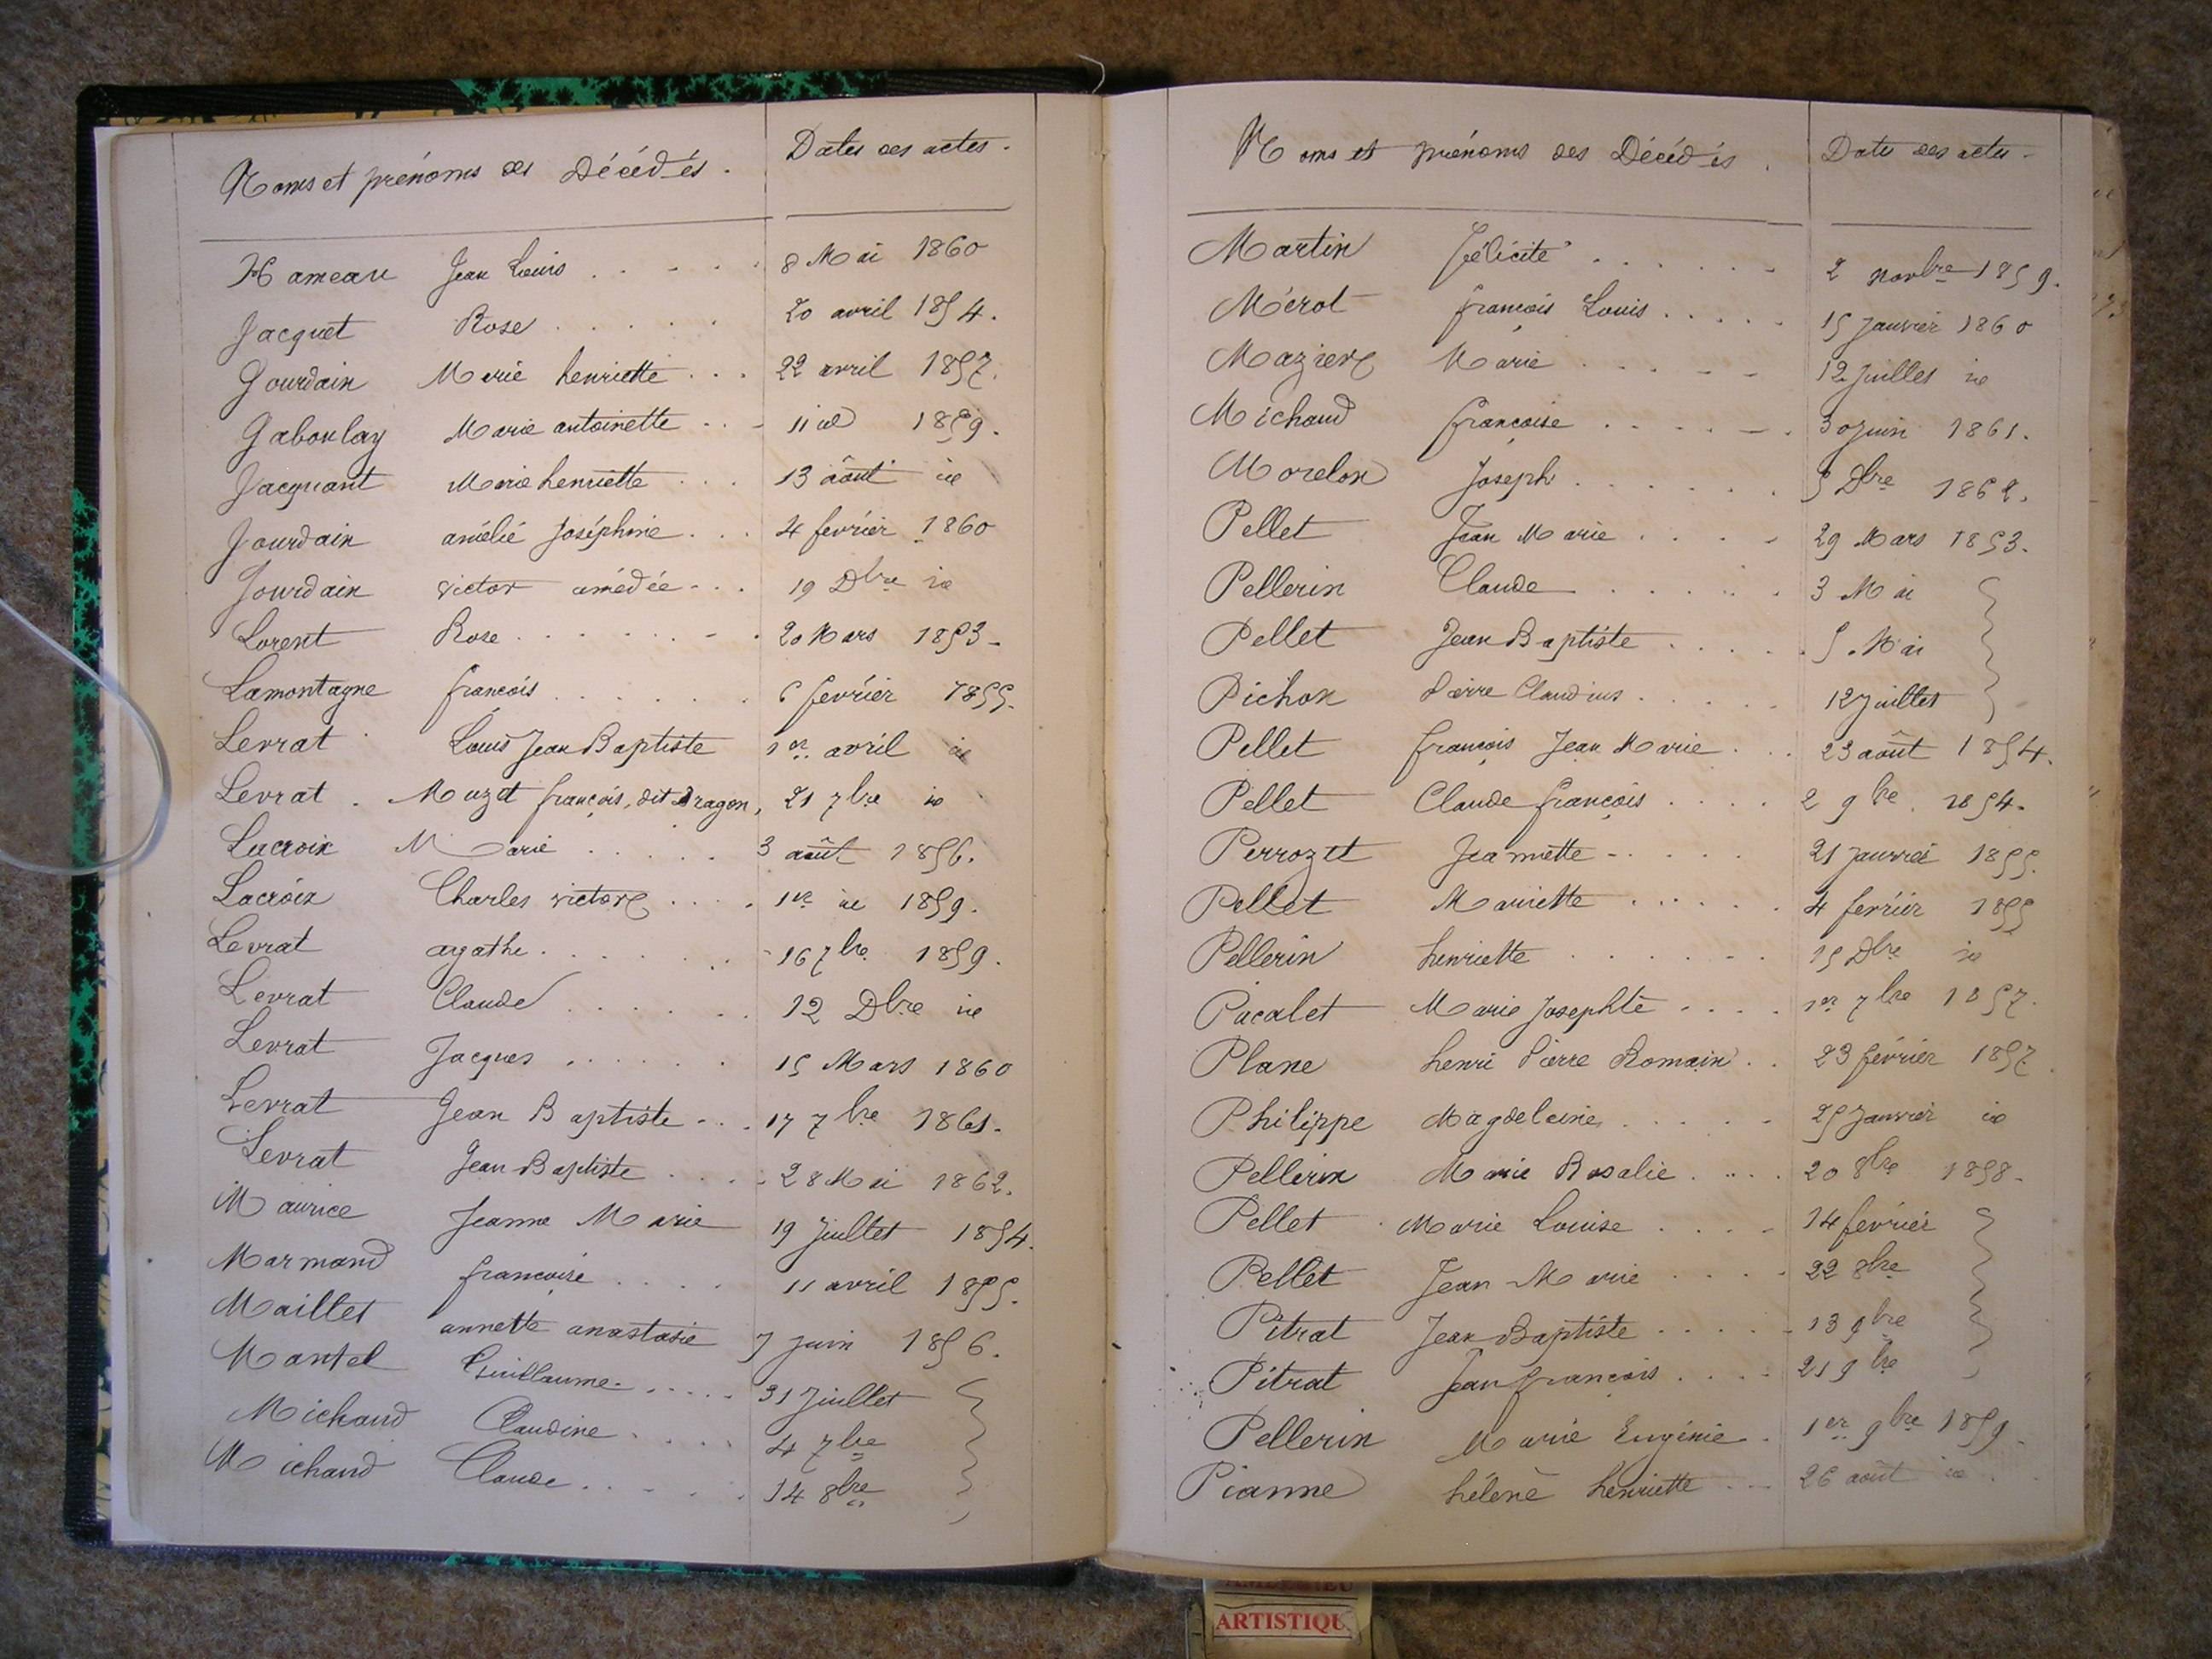 Noms et prénoms des Décédés. Dates des actes.
Hameau Jean Louis . . . . . 8 Mai 1860
Jacquet Rose . . . . . 20 avril 1854.
Gourdain Marie henriette . . . 22 avril 1857.
Gaboulay Marie antoinette . . . 11 id 1859.
Jacquant Marie henriette . . . 13 août id
Jourdain amélie Joséphine . . . 4 fevrier 1860
Jourdain victor amédée . . . 19 Dbre id
Lorent Rose . . . . . . . 20 Mars 1853.
Lamontagne françois . . . . . . 6 fevrier 1855.
Levrat Louis Jean Baptiste 1er avril id
Levrat . Muzet françois, dit Dragon, 21 7bre id
Lacroix Marie . . . . . 3 août 1856.
Lacroix Charles victor . . . . 1er id 1859.
Levrat agathe . . . . . . . 16 7bre 1859.
Levrat Claude . . . . . . 12 Dbre id
Levrat Jacques . . . . . . 15 Mars 1860
Levrat Jean Baptiste . . . 17 7bre 1861.
Levrat Jean Baptiste . . . . 28 Mai 1862.
Maurice Jeanne Marie 19 Juillet 1854.
Marmand françoise . . . . 11 avril 1855.
Maillet annette anastasie 7 Juin 1856.
Mantel Guillaume . . . . . 31 Juillet
Michaud Claudine . . . . 4 7bre
Michaud Claude . . . . . 14 8bre
Noms et prénoms des Décédés. Dates des actes.
Martin Félicité . . . . . . 2 novbre 1859.
Mérot françois Louis . . . . . 15 Janvier 1860
Maziere Marie . . . . . 12 Juillet id
Michaud françoise . . . . . . 30 Juin 1861.
Morelon Joseph . . . . . . 5 Dbre 1862.
Pellet Jean Marie . . . . 29 Mars 1853.
Pellerin Claude . . . . . 3 Mai
Pellet Jean Baptiste . . . . . 5 Mai
Pichon Pierre Claudius . . . . 12 Juillet
Pellet françois Jean Marie . . . 23 août 1854.
Pellet Claude françois . . . . 2 9bre 1854.
Perrozet Jeannette . . . . . 21 Janvier 1855.
Pellet Mariette . . . . . . 4 fevrier 1855
Pellerin henriette . . . . . . 15 Dbre id
Pacalet Marie Josephte . . . . 1er 7bre 1857.
Plane henri Pierre Romain . . 23 février 1857
Philippe Magdeleine . . . . . 25 Janvier id
Pellerin Marie Rosalie . . . . 20 8bre 1858.
Pellet Marie Louise . . . . 14 fevrier
Pellet Jean Marie . . . . 22 8bre
Pitrat Jean Baptiste . . . . . 13 9bre
Pitrat Jean françois . . . . 21 9bre
Pellerin Marie Eugénie . 1er 9bre 1859
Pianne hélène henriette . . . 26 août id
ARTISTIQU